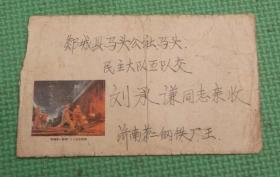 郯城县马头公社马头
民主大队五队交
刘承谦同志亲收
济南第二钢铁厂王